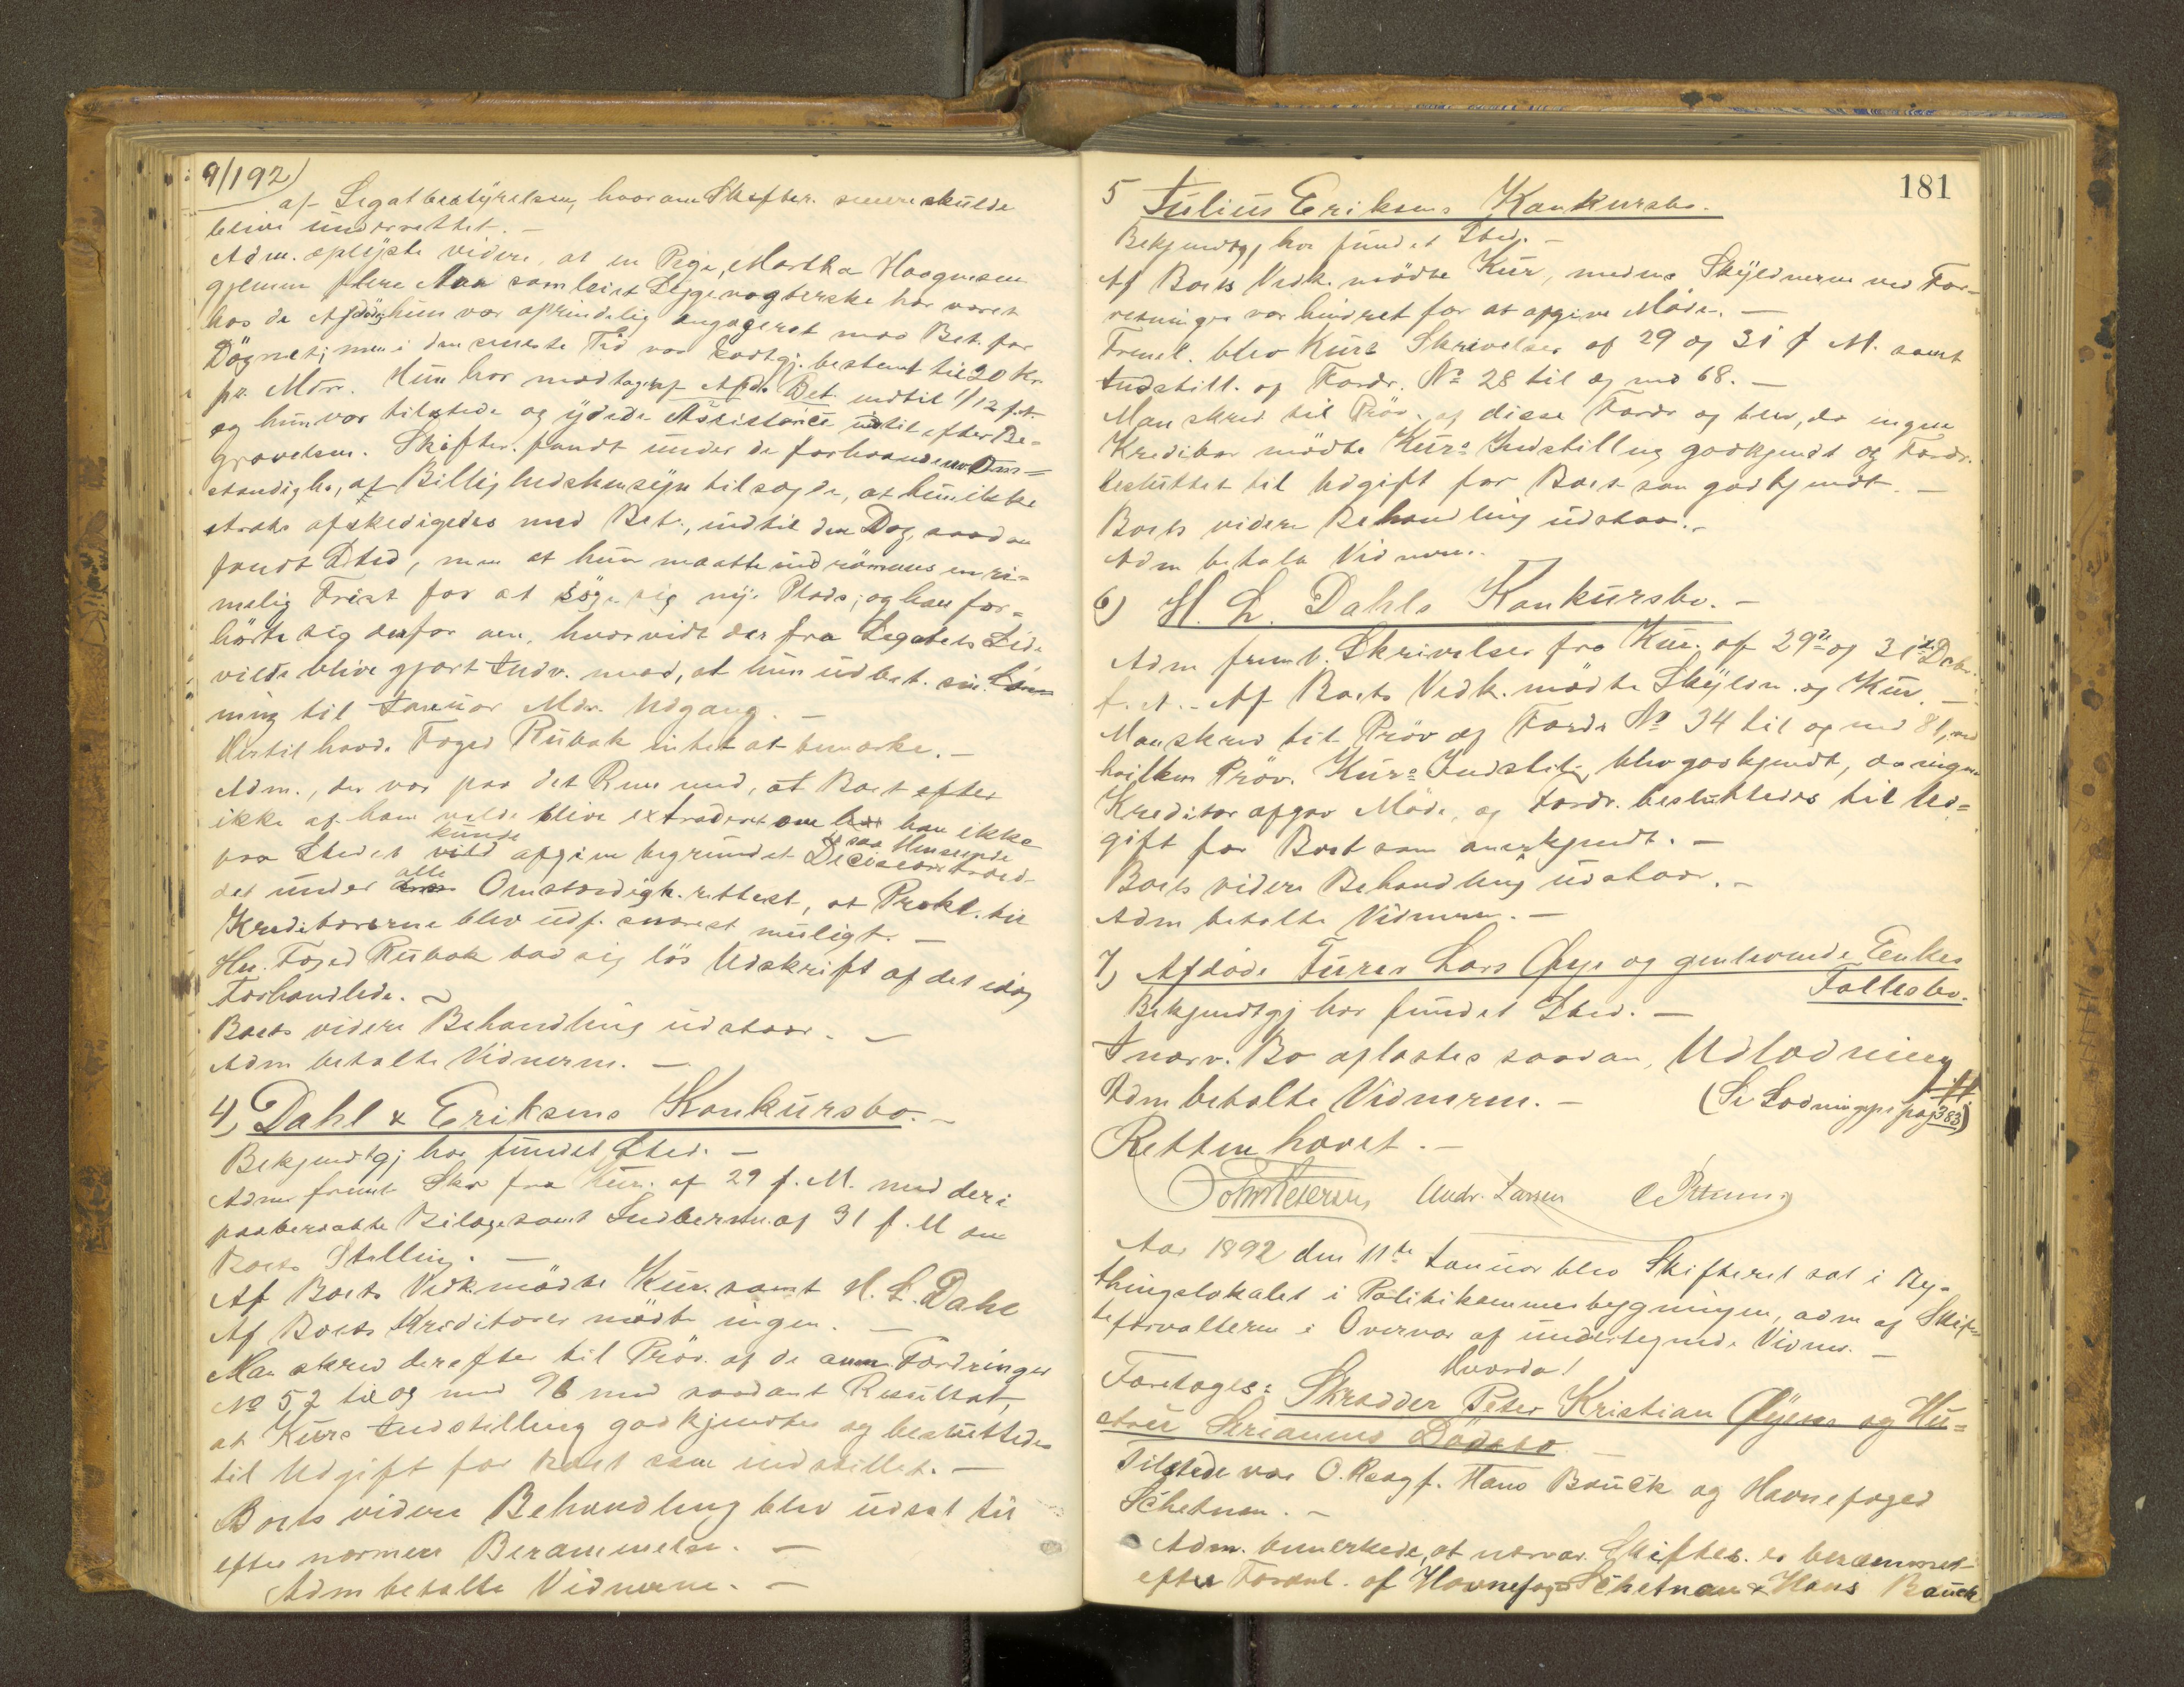 9/192)
af Legatbestyrelsen, hvorom Skifter. senere skulde
blive underrettet. —
Adm. oplyste videre, at en Pige, Martha Haagensen
gjennem flere Aar som leiet Sygevogterske har været
hos de Afdöde; hun var oprindelig engageret mod Bet. for
Dögnet; men i den seneste Tid var Godtgj. bestemt til 20 Kr.
pr. Mdr. Hun har modtaget af Afdøde Bet. indtil 1/12 f.A.
og hun var tilstede og ydede Assistance indtil efter Be=
gravelsen. Skifter. fandt under de forhaandenv. Om=
stændigh., af Billighedshensyn tilsagde, at hun ikke
straks afskedigedes med Bet., indtil den Dag, saadan
fandt Sted, men at hun maatte indrömmes en ri=
melig Frist for at söge sig ny Plads; og han for=
hörte sig derfor om, hvorvidt der fra Legatets Side
vilde blive gjort Indv. mod, at hun udbet. sin Løn
ning til Januar Mdr. Udgang. —
Hertil havde Foged Rubak intet at bemærke. —
Adm., der var paa det Rene med, at Boet efter
ikke af ham vilde blive extraderet om han ikke
paa Stedet kunde afgive begrundet Decision i saa Henseende
det under alle Omstændigh. rettest, at Prokl. til
Kreditorerne blev udf. snarest muligt. —
Hr. Foged Rubak bad sig lös Udskrift af det idag
Forhandlede. —
Boets videre Behandling udstaar. —
Adm betalte Vidnerne. —
4) Dahl & Eriksens Konkursbo. —
Bekjendtgj har fundet Sted. —
Adm fremt Skr fra Kur. af 29 f. M. med deri
paaberaabte Bilage samt Indberetn. af 31 f. M om
Boets Stilling. —
Af Boets Vedk. mödte Kur. samt H. L. Dahl
Af Boets Kreditorer mödte ingen. —
Man skred derefter til Pröv. af de anm. Fordringer
No 52 til og med 96 med saadant Resultat,
at Kurs Indstilling godkjendtes og besluttedes
til Udgift for Boet som indstillet. —
Boets videre Behandling blev udsat til
efter nærmere Berammelse. —
Adm betalte Vidnerne. —
181
5 Julius Eriksens Konkursbo.
Bekjendtgj har fundet Sted. —
Af Boets Vedk. mödte Kur, medens Skyldneren ved For=
retninger var hindret for at afgive Möde. —
Freml. blev Kurs Skrivelser af 29 og 31 f. M. samt
Indstill. af Fordr. No 28 til og med 68. —
Man skred til Pröv. af disse Fordr og blev, da ingen
Kreditor mödte Kurs Indstilling godkjendt og Fordr.
besluttet til Udgift for Boet som godkjendt. —
Boets videre Behandling udstaar. —
Adm betalte Vidnerne.
6) H. L. Dahls Konkursbo. —
Adm freml. Skrivelser fra Kur. af 29de og 31te Decbr.
f. A. - Af Boets Vedk. mödte Skyldn. og Kur. —
Man skred til Pröv af Fordr No 34 til og med 81, ved
hvilken Pröv. Kurs Indstilg blev godkjendt, da ingen
Kreditor afgav Möde, og Fordr. besluttedes til Ud=
gift for Boet som anerkjendt. —
Boets videre Behandling udstaar. —
Adm betalte Vidnerne. —
7) Afdöde Furer Lars Øye og gjenlevende Enkes
Fællesbo.
Bekjendtgj har fundet Sted. —
I nærv. Bo afsattes saadan, Udlodning
Adm betalte Vidnerne. —
(Se Lodningspr pag 383)
Retten hævet. —
Joh Petersen Andr. Larsen
Aar 1892 den 11te Januar blev Skifteret sat i By=
thingslokalet i Politikammerbygningen, adm af Skif=
teforvalteren i Overvær af undertegnede Vidner. —
Hvorda!
Foretoges: Skrædder Peter Kristian Öyens og Hu=
stru Serianus Dödsbo. —
Tilstede var O. Ragf. Hans Bauck og Havnefoged
Schetnan. —
Adm. bemerkede, at nærvær. Skiftes. er berammet
efter Foranl. af Havnefoged Schetnan & Hans Bauck